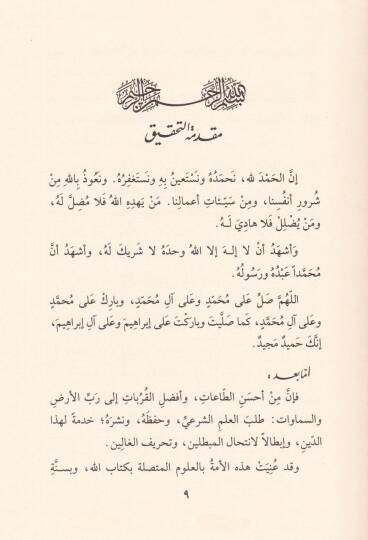 بسم الله الرحمن الرحيم
مقدمة التحقيق
إنَّ الحَمْدَ لله، نَحمَدُهُ ونَسْتَعينُ بِهِ ونَستَغفِرُهُ. ونَعوذُ بِاللهِ مِنْ
شُرورِ أنفُسِنا، ومِنْ سَيِّـئاتِ أعمالِنا. مَنْ يَهدِهِ اللهُ فَلا مُضِلَّ لَهُ،
ومَنْ يُضْلِلْ فَلا هادِيَ لَـهُ.
وَأشهَدُ أنْ لا إلـهَ إلا اللهُ وحدَهُ لا شَريكَ لَهُ، وأشهَدُ أنَّ
مُحَمَّداً عَبْدُهُ ورَسُولُهُ.
اللّهُمَّ صَلِّ عَلى مُحَمّدٍ وعَلى آلِ مُحَمّدٍ، وبارِكْ عَلى مُحمَّدٍ
وعَلى آلِ مُحَمَّدٍ، كَما صَلَّيتَ وبارَكْتَ عَلى إبراهيمَ وعَلى آلِ إبراهيمَ،
إنَّكَ حَميدٌ مَجيدٌ.
أما بعد:
فإنَّ مِنْ أحسَنِ الطّاعاتِ، وأفضلِ القُرُباتِ إلى رَبِّ الأرضِ
والسماوات: طلبَ العلمِ الشرعيِّ، وحفظَهُ، ونشرَهُ؛ خدمةً لهذا
الدّينِ، وإبطالاً لانتحال المبطلين، وتحريف الغالِين.
وقد عُنِيَتْ هذه الأمةُ بالعلوم المتصلة بكتاب الله، وبسـنَّةِ
٩